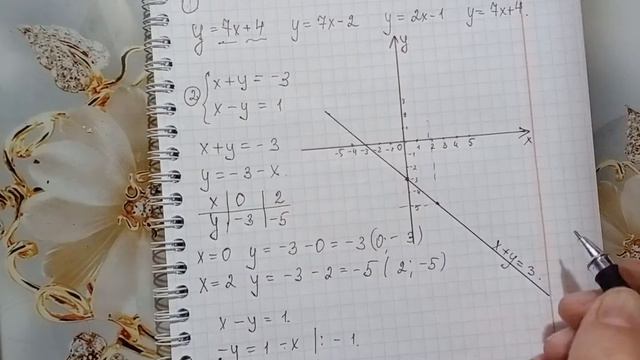 ①
y = 7x+4 y = 7x-2 y = 2x-1 y = 7x+4.
② { x+y = -3
x-y = 1
x+y = -3
y = -3-x.
x | 0 | 2
y | -3 | -5
x=0 y = -3-0 = -3 (0; -3)
x=2 y = -3-2 = -5 (2; -5)
x-y = 1.
-y = 1-x |: -1.
y
-5 -4 -3 -2 -1 0 1 2 3 4 5 x
x+y=3.